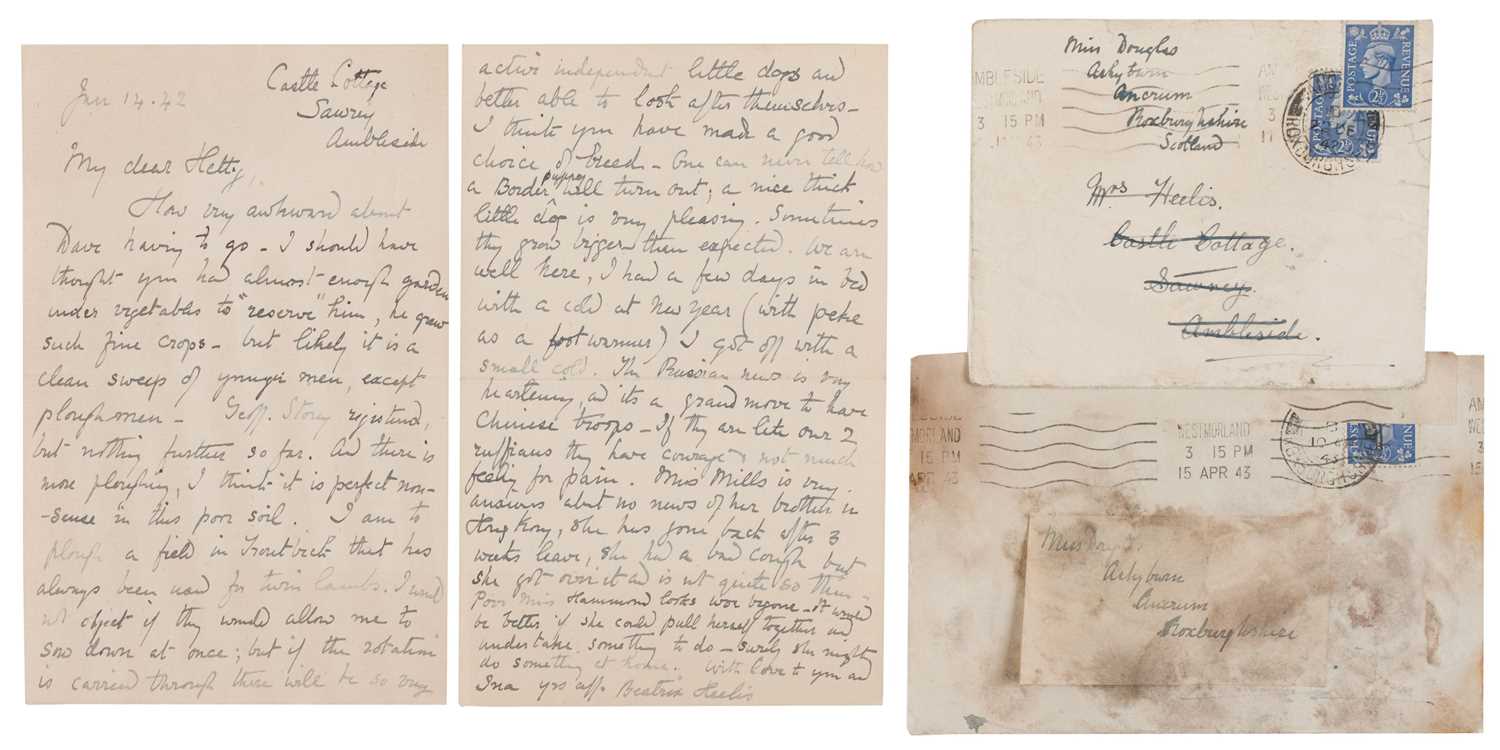 Jan 14. 42
Castle Cottage
Sawrey
Ambleside
My dear Hetty,
How very awkward about
Dave having to go - I should have
thought you had almost enough garden
under vegetables to "reserve" him, he grew
such fine crops - but likely it is a
clean sweep of younger men, except
ploughmen - Geoff. Storey registered,
but nothing further so far. And there is
more ploughing, I think it is perfect non-
-sense in this poor soil. I am to
plough a field in Troutbeck that has
always been used for twin lambs. I would
not object if they would allow me to
sow down at once; but if the rotation
is carried through there will be so very
active independent little dogs and
better able to look after themselves -
I think you have made a good
choice of breed - One can never tell how
a Border puppy will turn out; a nice thick
little dog is very pleasing. Sometimes
they grow bigger than expected. We are
well here, I had a few days in bed
with a cold at New Year (with peke
as a foot warmer) I got off with a
small cold. The Russian news is very
heartening, and its a grand move to have
Chinese troops - If they are like our 2
ruffians they have courage & not much
feeling for pain. Miss Mills is very
anxious about no news of her brother in
Hong Kong, she has gone back after 3
weeks leave, she had a bad cough but
she got over it and is not quite so thin -
Poor Miss Hammond looks woe begone - it would
be better if she could pull herself together and
undertake something to do - surely she might
do something at home. With love to you and
Ina yrs aff. Beatrix Heelis
Miss Douglas
Ashyburn
Ancrum
Roxburghshire
Scotland
MBLESIDE
3 15 PM
43
AM
WEST
3
POSTAGE
REVENUE
2½
Mrs Heelis.
Castle Cottage.
Sawrey.
Ambleside.
LESIDE
MORLAND
15 PM
APR 43
WESTMORLAND
3 15 PM
15 APR 43
AM
WE
3
15
Ashyburn
Ancrum
Roxburghshire